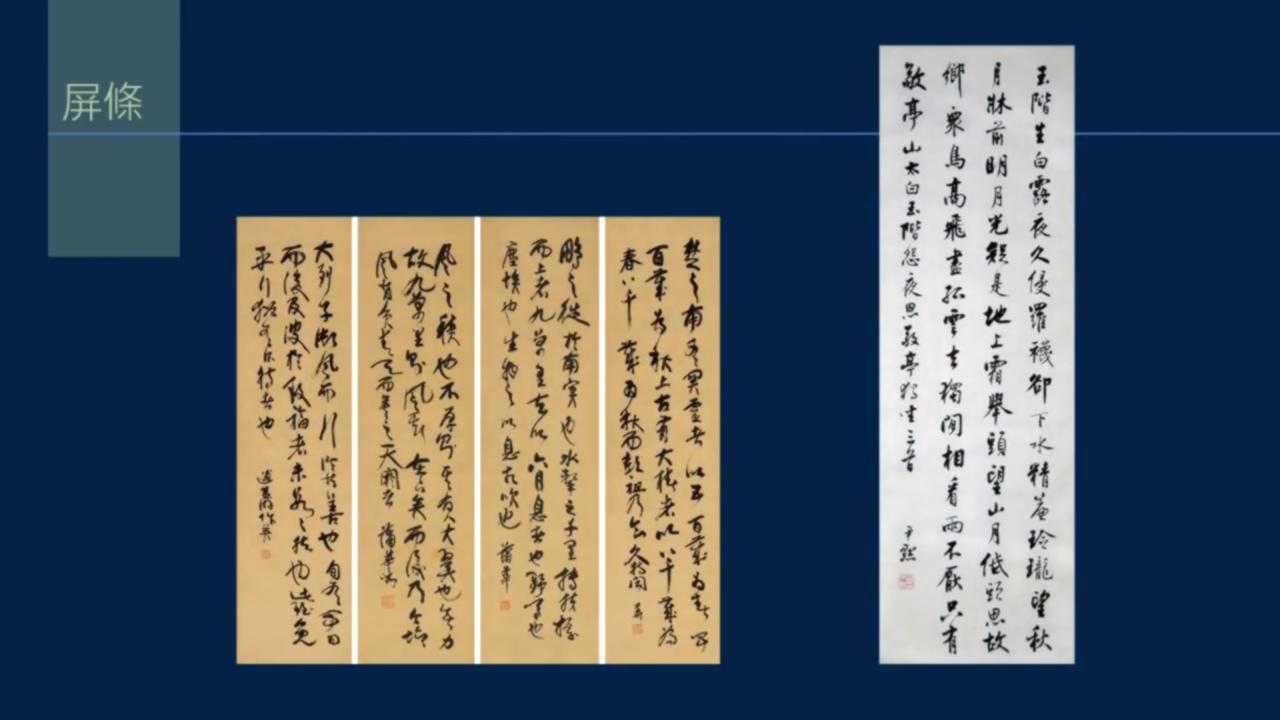 屏條
玉階生白露夜久侵羅襪卻下水精簾玲瓏望秋
月牀前明月光疑是地上霜舉頭望山月低頭思故
鄉眾鳥高飛盡孤雲去獨閒相看兩不厭只有
敬亭山太白玉階怨夜思敬亭獨坐三首
尹默
楚之南有冥靈者以五百歲為春五
百歲為秋上古有大椿者以八千歲為
春八千歲為秋而彭祖乃今久特聞
鵬之徙於南冥也水擊三千里摶扶搖
而上者九萬里去以六月息者也野馬也
塵埃也生物之以息相吹也
蒲華
風之積也不厚則其負大翼也無力
故九萬里則風斯在下矣而後乃今培
風背負青天而莫之夭閼者
蒲華
夫列子御風而行泠然善也旬有五日
而後反彼於致福者未數數然也此雖免
乎行猶有所待者也